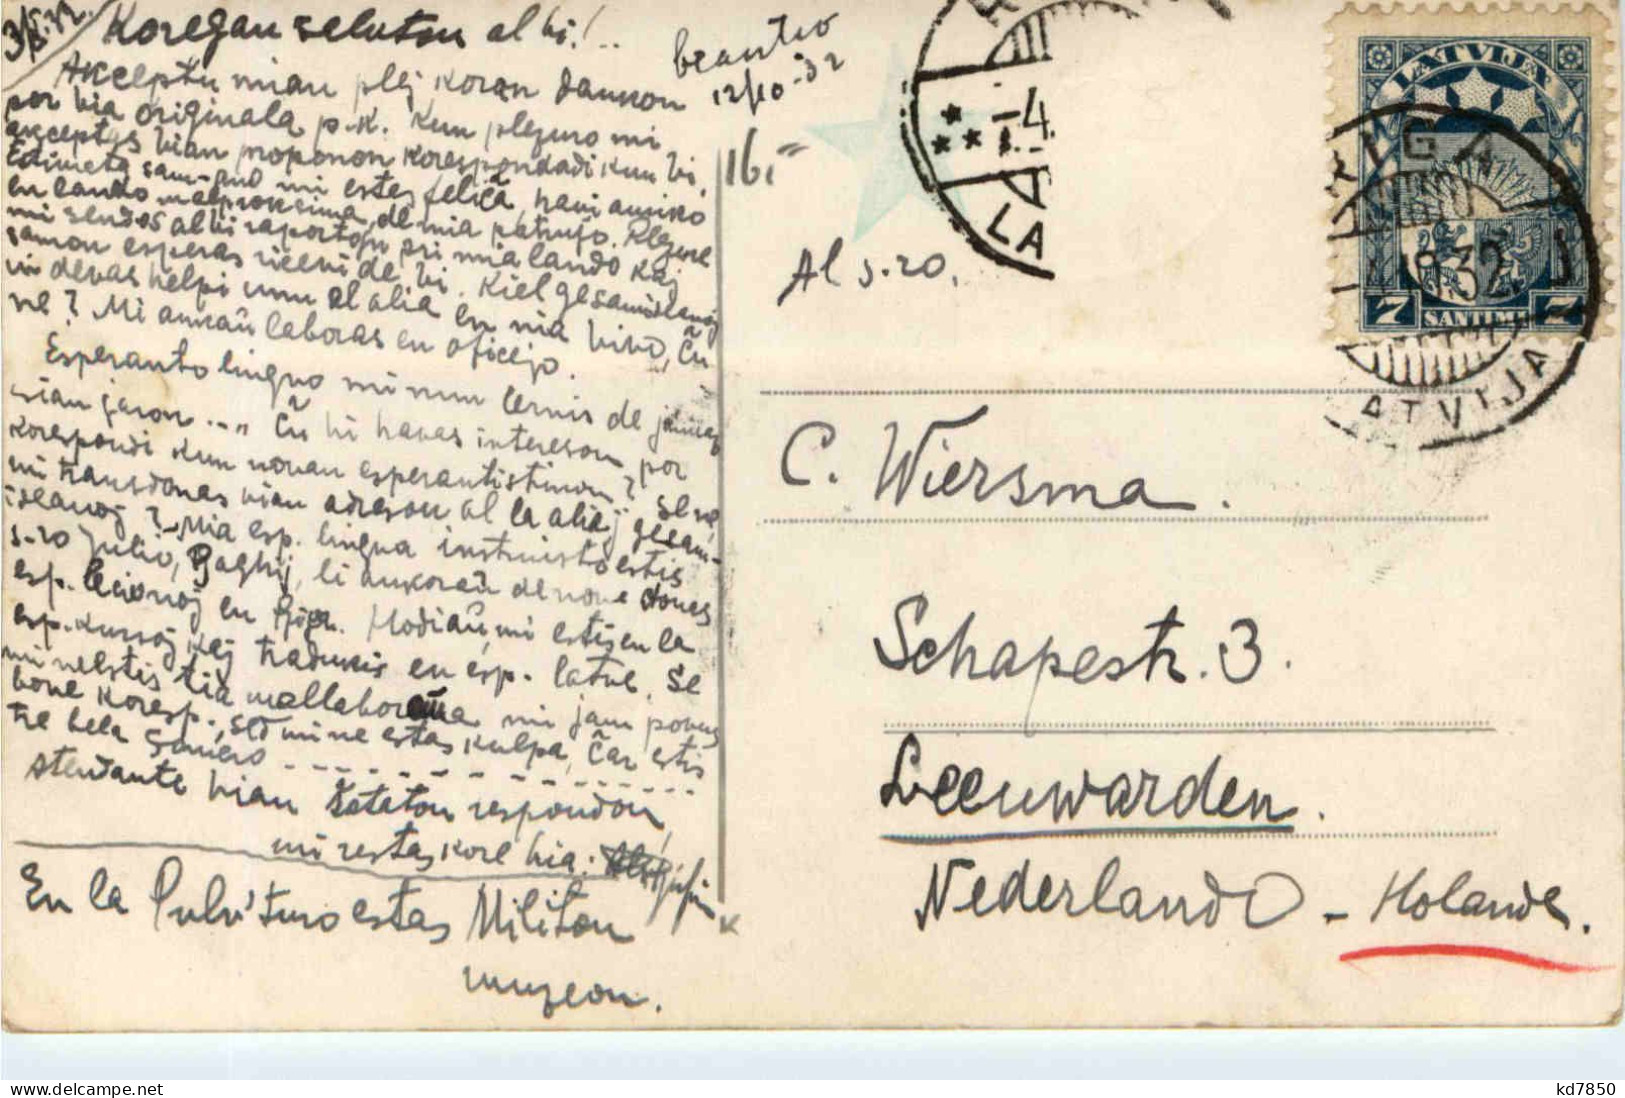 Koregan saluton al vi!..
Akceptu mian plej koran dankon
por via originala p.k. Kun plezuro mi
akceptas vian proponon korespondadi kun vi.
mi estas feliĉa, havi amiko
en lando malproksima de mia patrujo. Plezure
mi sendos al vi raportojn pri mia lando kaj
samon esperas ricevi de vi. Kiel gesamideanoj
ni devas helpi unu al alia en nia vivo, ĉu
ne? Mi ankaŭ laboras en oficejo.
Esperanto lingvo mi nun lernis de
jaron .... Ĉu vi havas intereson por
korespondi kun novan esperantistinon? Se ne,
mi transdonas vian adreson al la aliaj gesam-
ideanoj? Mia esp. lingva instruisto estis
s-ro Julio, li ankoraŭ denove donas
esp. lecionoj en Riga. Hodiaŭ, mi estis en la
esp. kursoj kaj tradukis en esp. latve. Se
mi nelstis tia mallaborema mi jam povus
bone koresp., sed mi ne estas kulpa, ĉar estis
tre bela somero - - - - - - - -
atendante vian ŝatatan respondon,
mi restas kore via:
En la Pulv.turo estas Militon
muzeon.
12/10-32
16,=
Al s-ro.
C. Wiersma.
Schapestr. 3.
Leeuwarden.
Nederlando - Holande.
LATVIJA
7 SANTIMI 7
RIGA
LATVIJA
-4.
LA
kd7850